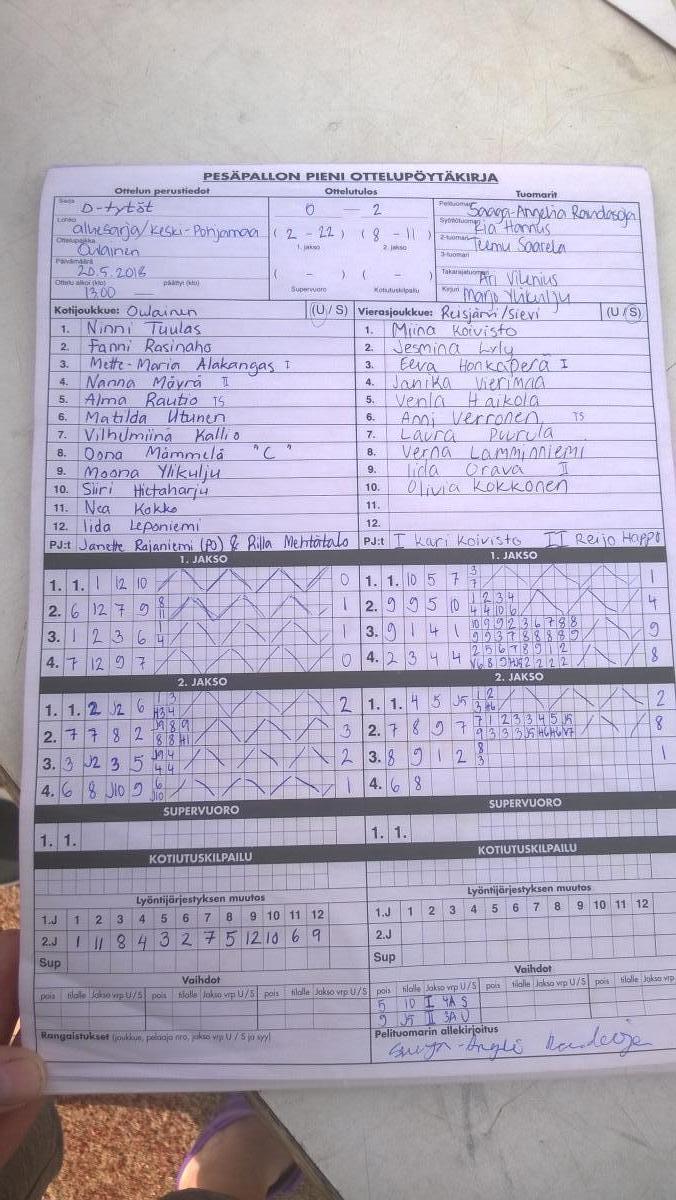 PESÄPALLON PIENI OTTELUPÖYTÄKIRJA
Ottelun perustiedot Ottelutulos Tuomarit
Sarja D-tytöt 0 — 2 Pelituomari
Lohko aluesarja/Keski-Pohjamaa ( 2 - 22 ) ( 8 - 11 ) Syöttötuomari Ria Hannus
1. jakso 2. jakso
Ottelupaikka Oulainen 2-tuomari Teemu Saarela
3-tuomari
Päivämäärä 20.5.2018 ( - ) ( - ) Takarajatuomari Ari Vilenius
Ottelu alkoi (klo) 13.00 päättyi (klo) — Supervuoro Kotiutuskilpailu Kirjuri Marjo Ylikulju
Kotijoukkue: Oulainen (U / S) Vierasjoukkue: Reisjärvi/Sievi (U / S)
1. Ninni Tuulas 1. Miina Koivisto
2. Fanni Rasinaho 2. Jesmina
3. Mette-Maria Alakangas I 3. Eeva Honkaperä I
4. Nanna Möyrä II 4. Janika Vierimaa
5. Alma Rautio TS 5. Venla Haikola
6. Matilda Utunen 6. Anni Verronen TS
7. Vilhelmiina Kallio 7. Laura Puurula
8. Oona Mämmelä "C" 8. Verna Lamminniemi
9. Moona Ylikulju 9. Iida Orava II
10. Siiri Hietaharju 10. Olivia Kokkonen
11. Nea Kokko 11.
12. Iida Leponiemi 12.
PJ:t Janette Rajaniemi (PO) & Riila Mehtätalo PJ:t I Kari Koivisto II Reijo Happo
1. JAKSO 1. JAKSO
1. 1. 1 12 10 0 1. 1. 10 5 7 3 7 1
2. 6 12 7 9 8 11 1 2. 9 9 5 10 1 2 3 4 4 4 10 6 4
3. 1 2 3 6 1 4 1 3. 9 1 4 1 10 9 9 2 3 6 7 8 8 9 9 3 7 8 8 8 8 9 9
4. 7 12 9 7 0 4. 2 3 4 4 2 5 6 7 8 9 1 2 8
2. JAKSO 2. JAKSO
1. 1. 2 J2 6 1 3 H3 4 2 1. 1. 4 5 J5 1 2 3 H6 2
2. 7 7 8 2 J9 8 9 8 8 H1 3 2. 7 8 9 7 7 1 2 3 3 4 5 J5 9 3 3 3 J5 H6 H6 V7 8
3. 3 J2 3 5 J9 4 4 4 2 3. 8 9 1 2 8 3 1
4. 6 8 J10 9 6 J10 1 4. 6 8
SUPERVUORO SUPERVUORO
1. 1. 1. 1.
KOTIUTUSKILPAILU KOTIUTUSKILPAILU
Lyöntijärjestyksen muutos Lyöntijärjestyksen muutos
1.J 1 2 3 4 5 6 7 8 9 10 11 12 1.J 1 2 3 4 5 6 7 8 9 10 11 12
2.J 1 11 8 4 3 2 7 5 12 10 6 9 2.J
Sup Sup
Vaihdot Vaihdot
pois tilalle Jakso vrp U / S pois tilalle Jakso vrp U / S pois tilalle Jakso vrp U / S pois tilalle Jakso vrp U / S pois tilalle Jakso vrp U / S pois tilalle Jakso vrp U
5 10 I 4A S
9 J5 II 3A U
Rangaistukset (joukkue, pelaaja nro, jakso vrp U / S ja syy) Pelituomarin allekirjoitus